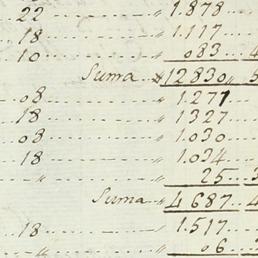 22 ........................ „ 1.878 ....
18 ........................ „ 1.117 ....
10 ........................ „ 083 .. 4
Suma .. „ 12830 „ 5
08 ........................ „ 1.271 ....
18 ........................ „ 1327 ....
08 ........................ „ 1.030 ....
18 ........................ „ 1.034 ....
„ ........................ „ 25 .... 3
Suma „ 4687 .. 4
18 ........................ „ 1.517 ....
„ ........................ „ 06 .. 3